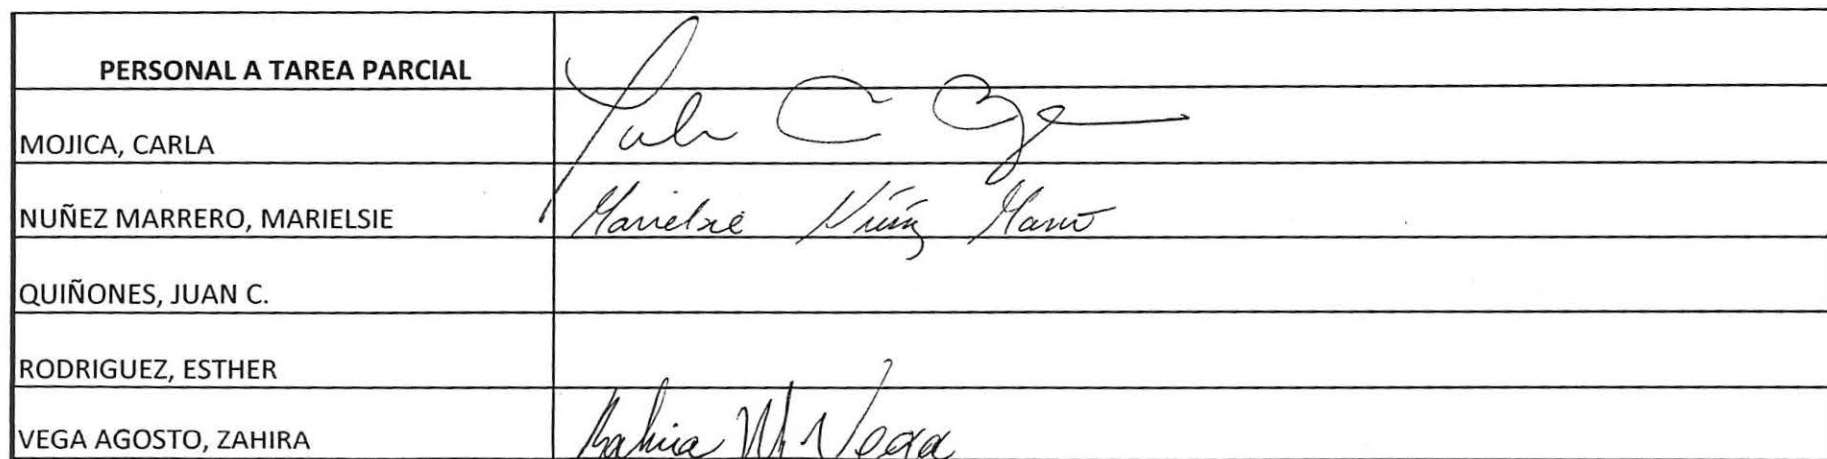 PERSONAL A TAREA PARCIAL
MOJICA, CARLA
NUÑEZ MARRERO, MARIELSIE Marielsie Núñ
QUIÑONES, JUAN C.
RODRIGUEZ, ESTHER
VEGA AGOSTO, ZAHIRA Zahira M Vega